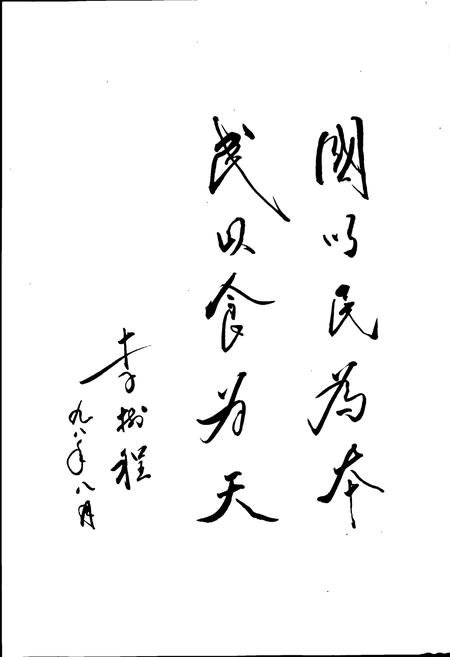 國以民為本
民以食为天
李樹程
九八年八月